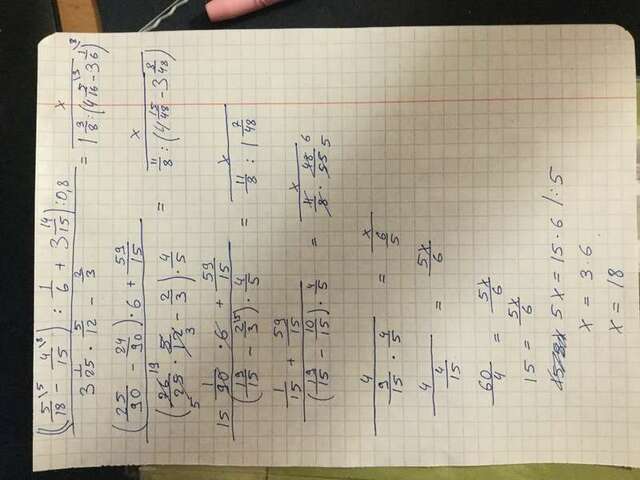 ((5/18\5 - 4/15\3) : 1/6 + 3 14/15) : 0,8 = x
3 1/25 · 5/12 - 2/3 1 3/8 : (4 5/16\3 - 3 1/6\8)
(25/90 - 24/90) · 6 + 59/15 = x
(76/25 19 5 · 5/12 3 - 2/3) · 4/5 11/8 : (4 15/48 - 3 8/48)
15 1/90 · 6 + 59/15 = x
(19/15 - 2/3\5) · 4/5 11/8 : 1 7/48
1/15 + 59/15 = x
(19/15 - 10/15) · 4/5 11/8 · 48/55 6 5
4 = x
9/15 · 4/5 6/5
4 = 5x/6
4/15
60/4 = 5x/6
15 = 5x/6
5x = 15 · 6 /: 5
x = 3 · 6
x = 18